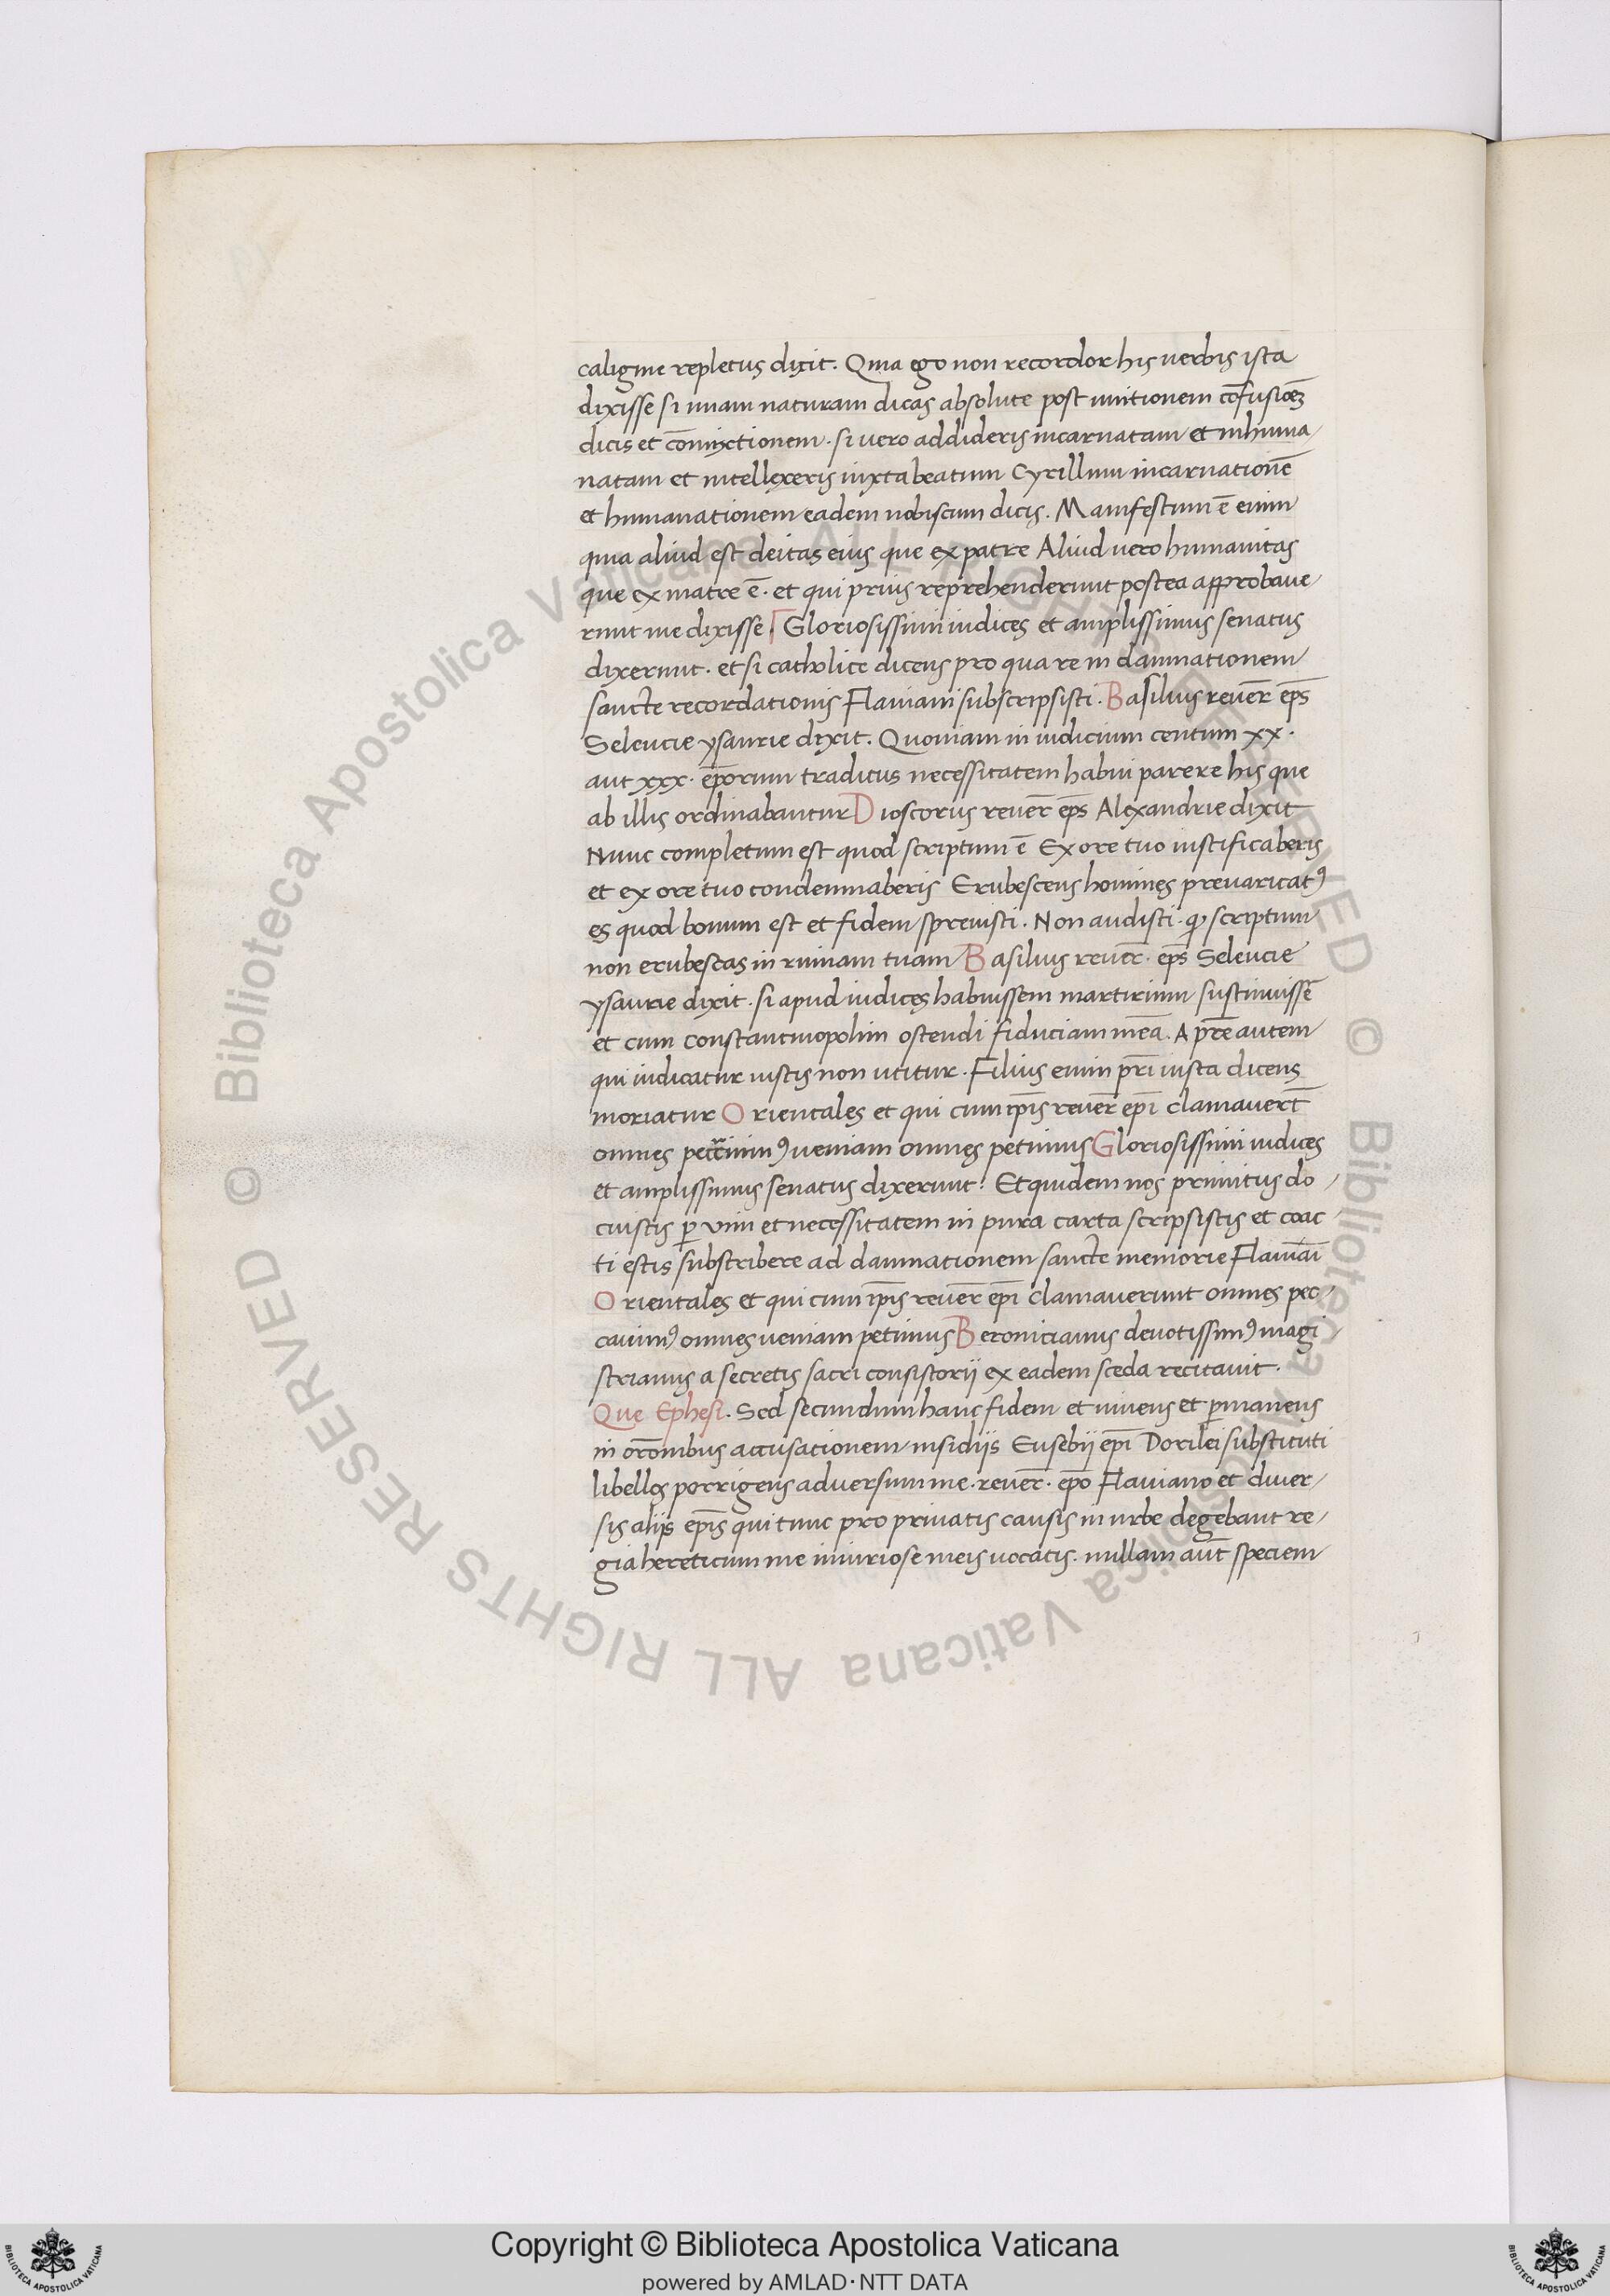 caligine repletus dixit. Quia ego non recordor his uerbis ista
dixisse si unam naturam dicas absolute post unitionem cōfusiōeꝫ
dicis et cōmixtionem. si uero addideris incarnatam et inhuma
natam et intellexeris iuxta beatum Cyrillum incarnationē
et humanationem eadem nobiscum dicis. Manifestum ē enim
quia aliud est deitas eius que ex patre Aliud uero humanitas
que ex matre ē. et qui prius reprehenderunt postea approbaue
runt me dixisse. Gloriosissimi iudices et amplissimus senatus
dixerunt. et si catholice dicens pro qua re in damnationem
sancte recordationis Flauiani subscripsisti. Basilius reuer̄ ep̄s
Seleucie ysaurie dixit. Quoniam in iudicium centum xx.
aut xxx. ep̄orum traditus necessitatem habui parere his que
ab illis ordinabantur Dioscorus reuer̄ ep̄s Alexandrie dixit
Nunc completum est quod scriptum ē Ex ore tuo iustificaberis
et ex ore tuo condemnaberis Erubescens homines preuaricatꝰ
es quod bonum est et fidem spreuisti. Non audisti. ꝙ scriptum
non erubescas in ruinam tuam Basilius reuer̄. ep̄s Seleucie
ysaurie dixit. si apud iudices habuissem martirium sustinuissē
et cum Constantinopolim ostendi fiduciam meā. A pr̄e autem
qui iudicatur iustis non utitur. Filius enim pr̄i iusta dicens
moriatur Orientales et qui cum ip̄is reuer̄ ep̄i clamauert̄
omnes peccauimꝰ ueniam omnes petimus Gloriosissimi iudices
et amplissimus senatus dixerunt. Et quidem nos primitus do
cuistis ꝑ uim et necessitatem in pura carta scripsistis et coac
ti estis subscribere ad damnationem sancte memorie Flauiāi
Orientales et qui cum ip̄is reuer̄ ep̄i clamauerunt omnes pec
cauimꝰ omnes ueniam petimus Beronicianus deuotissimꝰ magi
strianus a secretis sacri consistorii ex eadem sceda recitauit.
Que Ephesi. Sed secundum hanc fidem et uiuens et ꝑmanens
in or̄onibus accusationem insidiis Eusebii ep̄i Dorilei substituti
libellos porrigens aduersum me. reuer̄. ep̄o Flauiano et diuer
sis aliis ep̄is qui tunc pro priuatis causis in urbe degebant re
gia hereticum me iniuriose meis uocatis. nullam aut̄ speciem
Copyright © Biblioteca Apostolica Vaticana
powered by AMLAD·NTT DATA
© Biblioteca Apostolica Vaticana ALL RIGHTS RESERVED © Biblioteca Apostolica Vaticana ALL RIGHTS RESERVED
BIBLIOTECA APOSTOLICA VATICANA
BIBLIOTECA APOSTOLICA VATICANA